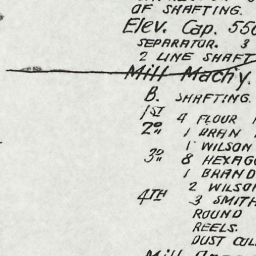 OF SHAFTING.
Elev. Cap. 550
SEPARATOR. 3
2 LINE SHAFT
Mill Mach'y.
B. SHAFTING.
1ST 4 FLOUR
2D 1 BRAN
1 WILSON
3D 8 HEXAGO
1 BRAND
2 WILSO
4TH 3 SMITH
ROUND
REELS.
DUST COL